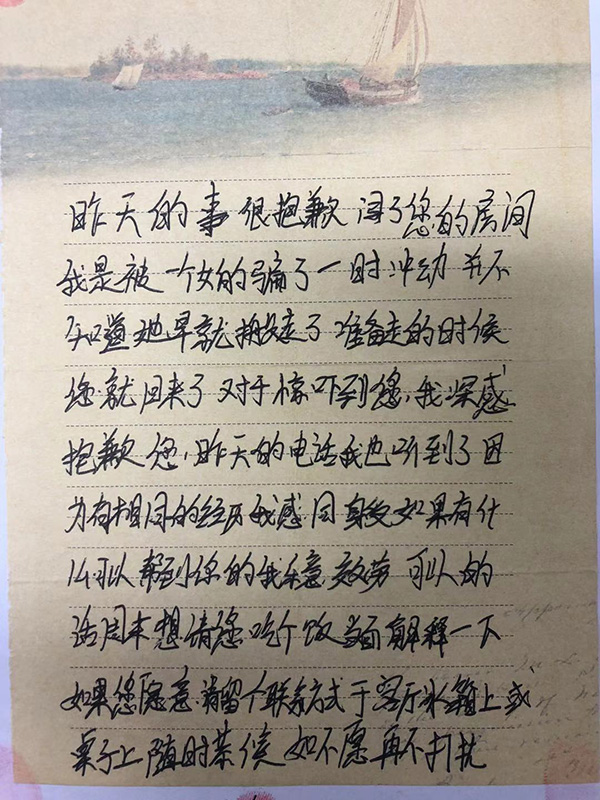 昨天的事 很抱歉 闯了您的房间
我是被一个女的骗了 一时冲动 并不
知道她早就搬走了 准备走的时候
您就回来了 对于惊吓到您,我深感
抱歉 您,昨天的电话我也听到了 因
为有相同的经历 我感同身受 如果有什
么可以帮到你的我乐意效劳 可以的
话周末想请您吃个饭 当面解释一下
如果您愿意 请留个联系方式于客厅冰箱上或
桌子上 随时恭候 如不愿 再不打扰